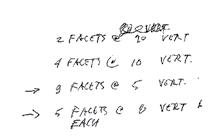 2 FACETS @ 20 VERT
4 FACETS @ 10 VERT.
→ 8 FACETS @ 5 VERT.
→ 5 FACETS @ 8 VERT
EACH